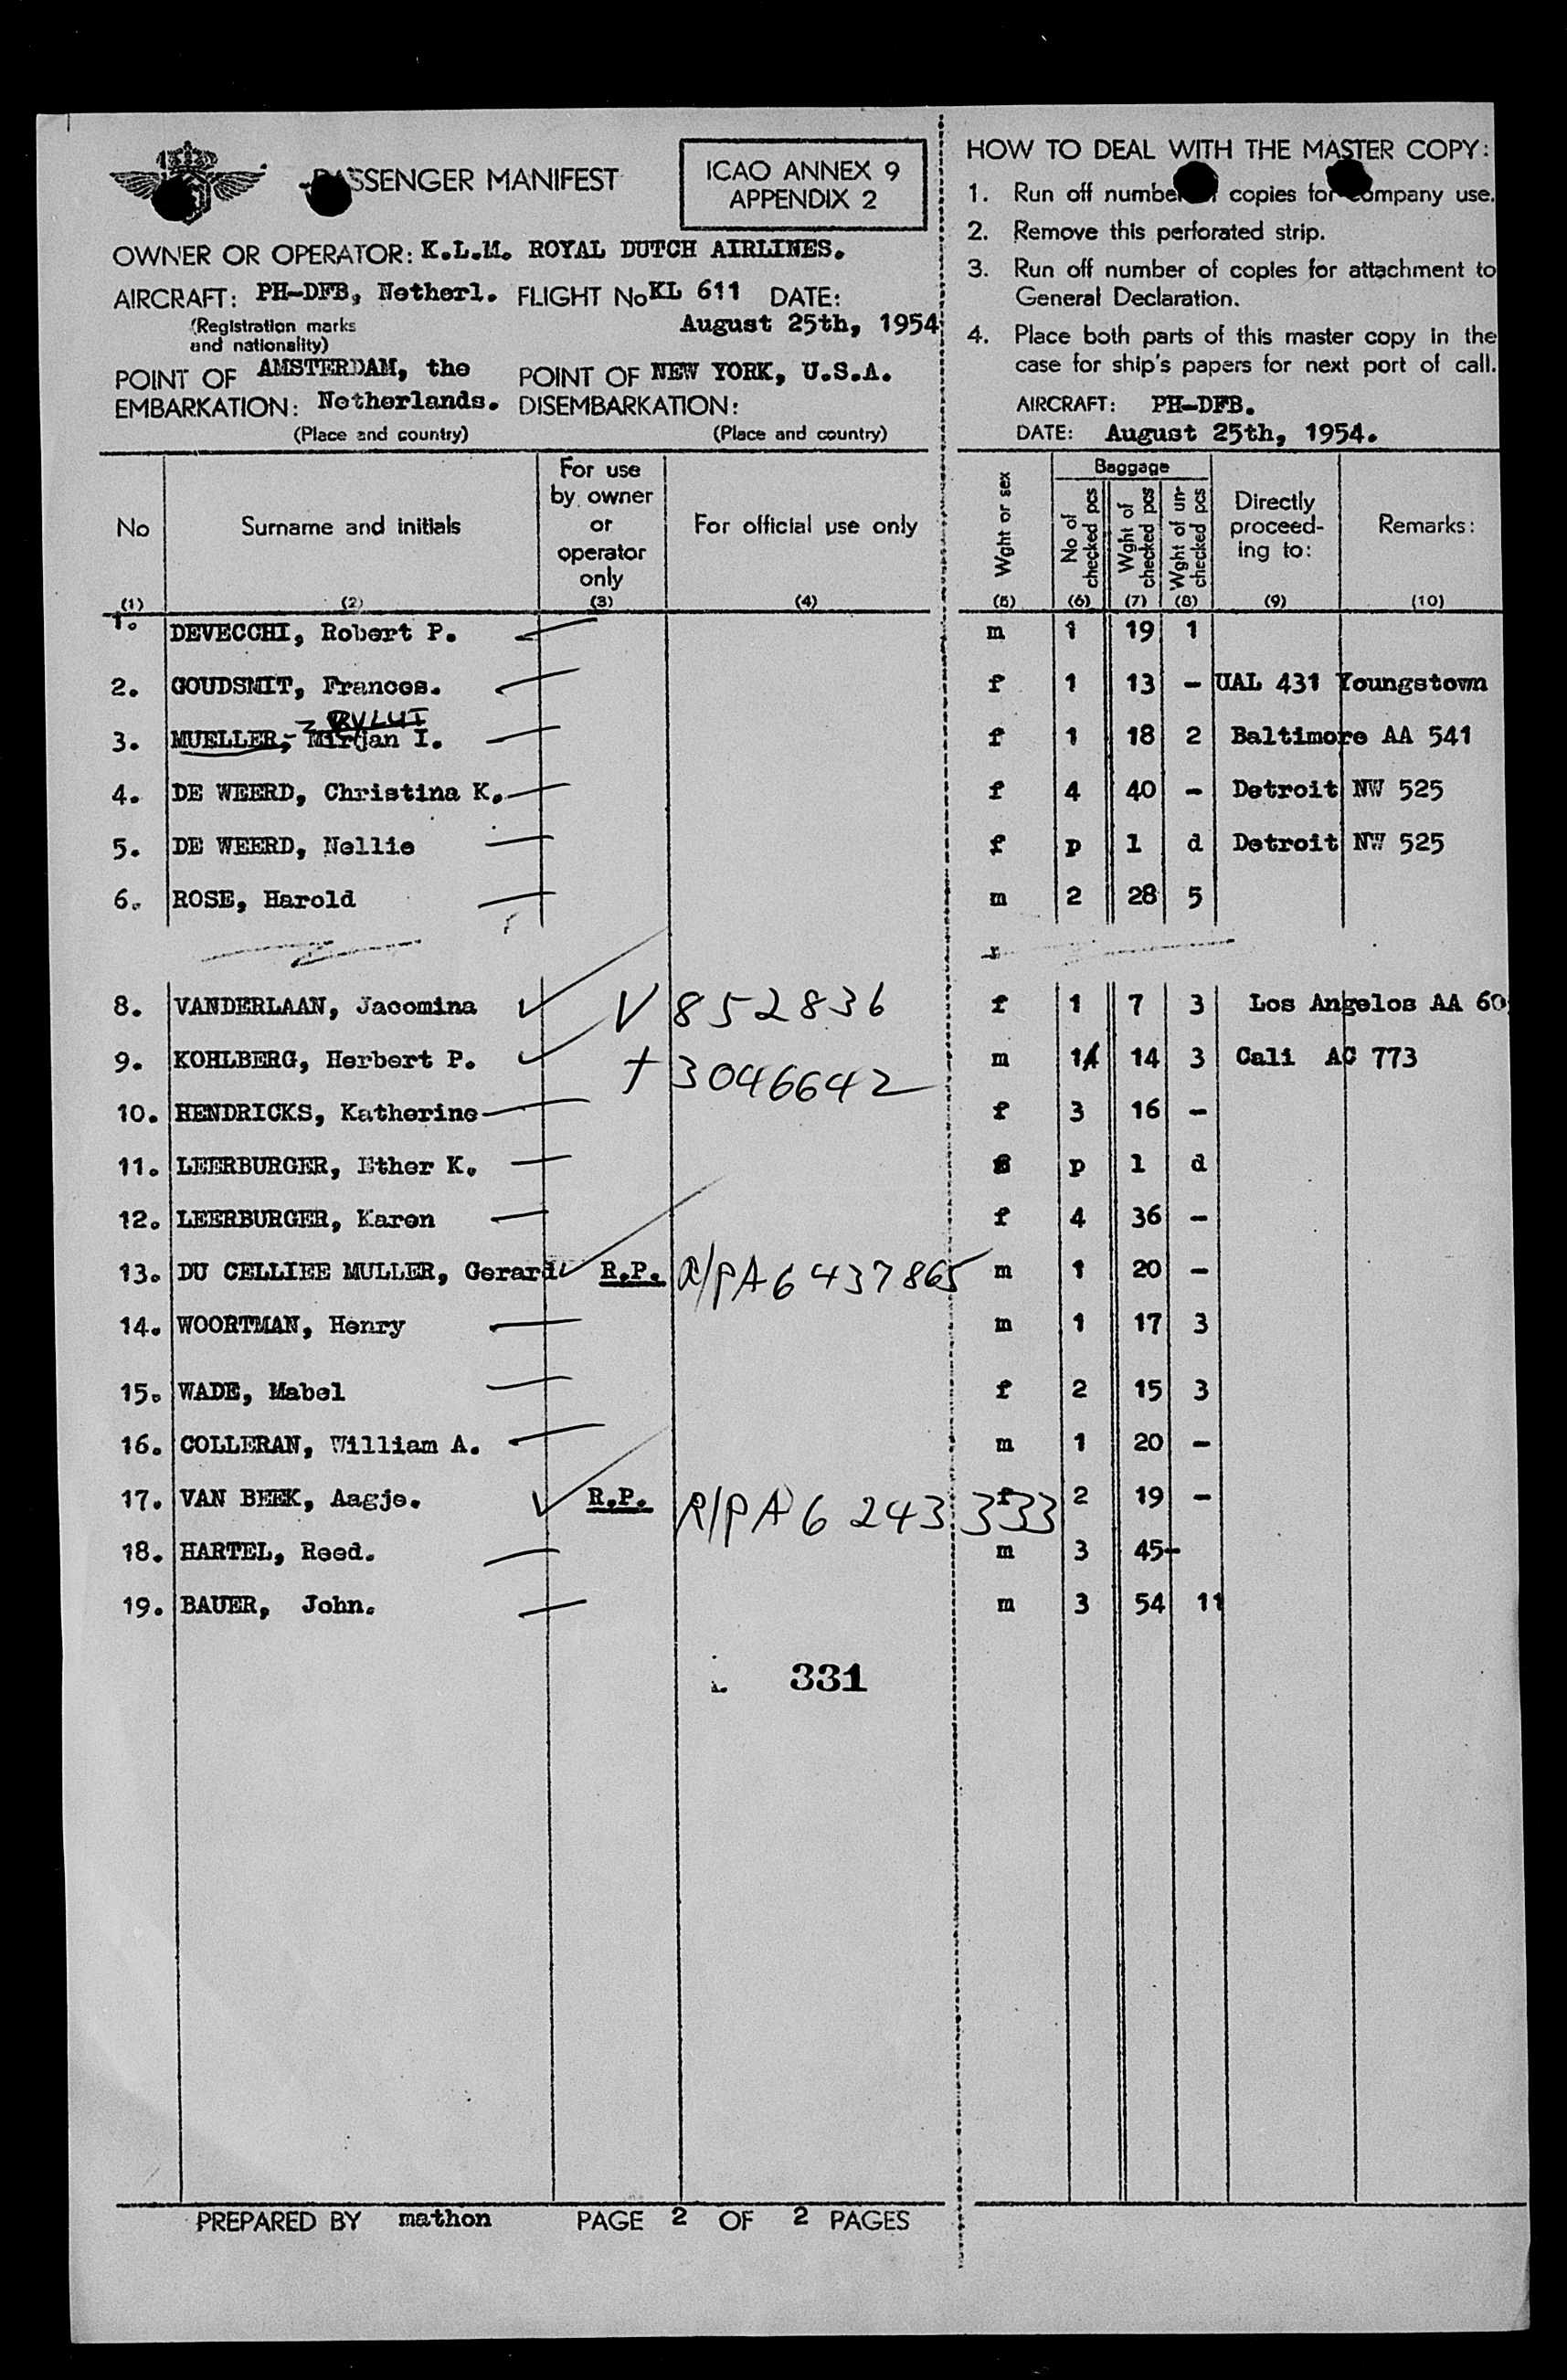 PASSENGER MANIFEST
ICAO ANNEX 9
APPENDIX 2
OWNER OR OPERATOR: K.L.M. ROYAL DUTCH AIRLINES.
AIRCRAFT: PH-DFB, Netherl. FLIGHT No KL 611 DATE:
(Registration marks and nationality)
August 25th, 1954
POINT OF EMBARKATION: AMSTERDAM, the Netherlands.
(Place and country)
POINT OF DISEMBARKATION: NEW YORK, U.S.A.
(Place and country)
HOW TO DEAL WITH THE MASTER COPY:
1. Run off number copies for company use.
2. Remove this perforated strip.
3. Run off number of copies for attachment to
General Declaration.
4. Place both parts of this master copy in the
case for ship's papers for next port of call.
AIRCRAFT: PH-DFB.
DATE: August 25th, 1954.
No (1)
Surname and initials (2)
For use by owner or operator only (3)
For official use only (4)
Wght or sex (5)
Baggage
No of checked pcs (6)
Wght of checked pcs (7)
Wght of un-checked pcs (8)
Directly proceed-ing to: (9)
Remarks: (10)
1. DEVECCHI, Robert P. m 1 19 1
2. GOUDSMIT, Frances. f 1 13 - UAL 431 Youngstown
3. MUELLER,- Mirjan I. f 1 18 2 Baltimore AA 541
4. DE WEERD, Christina K. f 4 40 - Detroit NW 525
5. DE WEERD, Nellie f p l d Detroit NW 525
6. ROSE, Harold m 2 28 5
8. VANDERLAAN, Jacomina V 852836 f 1 7 3 Los Angelos AA 60
9. KOHLBERG, Herbert P. + 3046642 m 1 14 3 Cali AC 773
10. HENDRICKS, Katherine f 3 16 -
11. LEERBURGER, Ether K. p l d
12. LEERBURGER, Karen f 4 36 -
13. DU CELLIEE MULLER, Gerard R.P. R/PA6437865 m 1 20 -
14. WOORTMAN, Henry m 1 17 3
15. WADE, Mabel f 2 15 3
16. COLLERAN, William A. m 1 20 -
17. VAN BEEK, Aagje. R.P. R/PA6 243333 f 2 19 -
18. HARTEL, Reed. m 3 45-
19. BAUER, John. m 3 54 11
331
PREPARED BY mathon PAGE 2 OF 2 PAGES